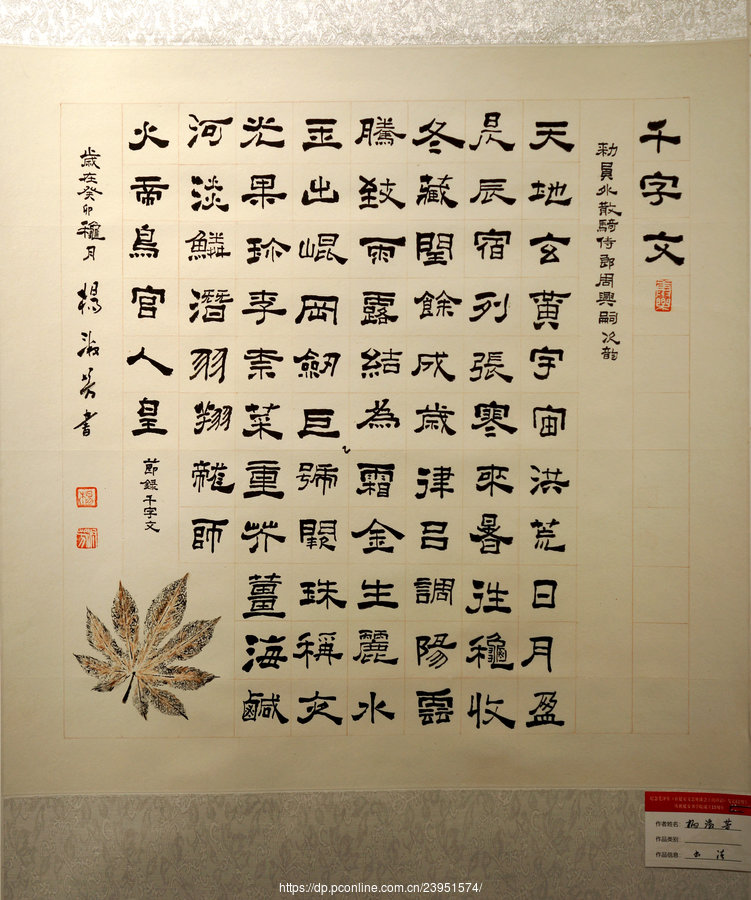 千字文
勑員外散騎侍郎周興嗣次韵
天地玄黃宇宙洪荒日月盈
昃辰宿列張寒來暑往龝收
冬藏閏餘成歲律吕調陽雲
騰致雨露結為霜金生麗水
玉出崐岡劒巨號闕珠稱夜
光果珍李柰菜重芥薑海鹹
河淡鱗潛羽翔龍師
火帝鳥官人皇
節錄千字文
歲在癸卯龝月 楊淑芳書
作者姓名: 楊淑芳
作品类别:
作品信息: 书法
https://dp.pconline.com.cn/23951574/